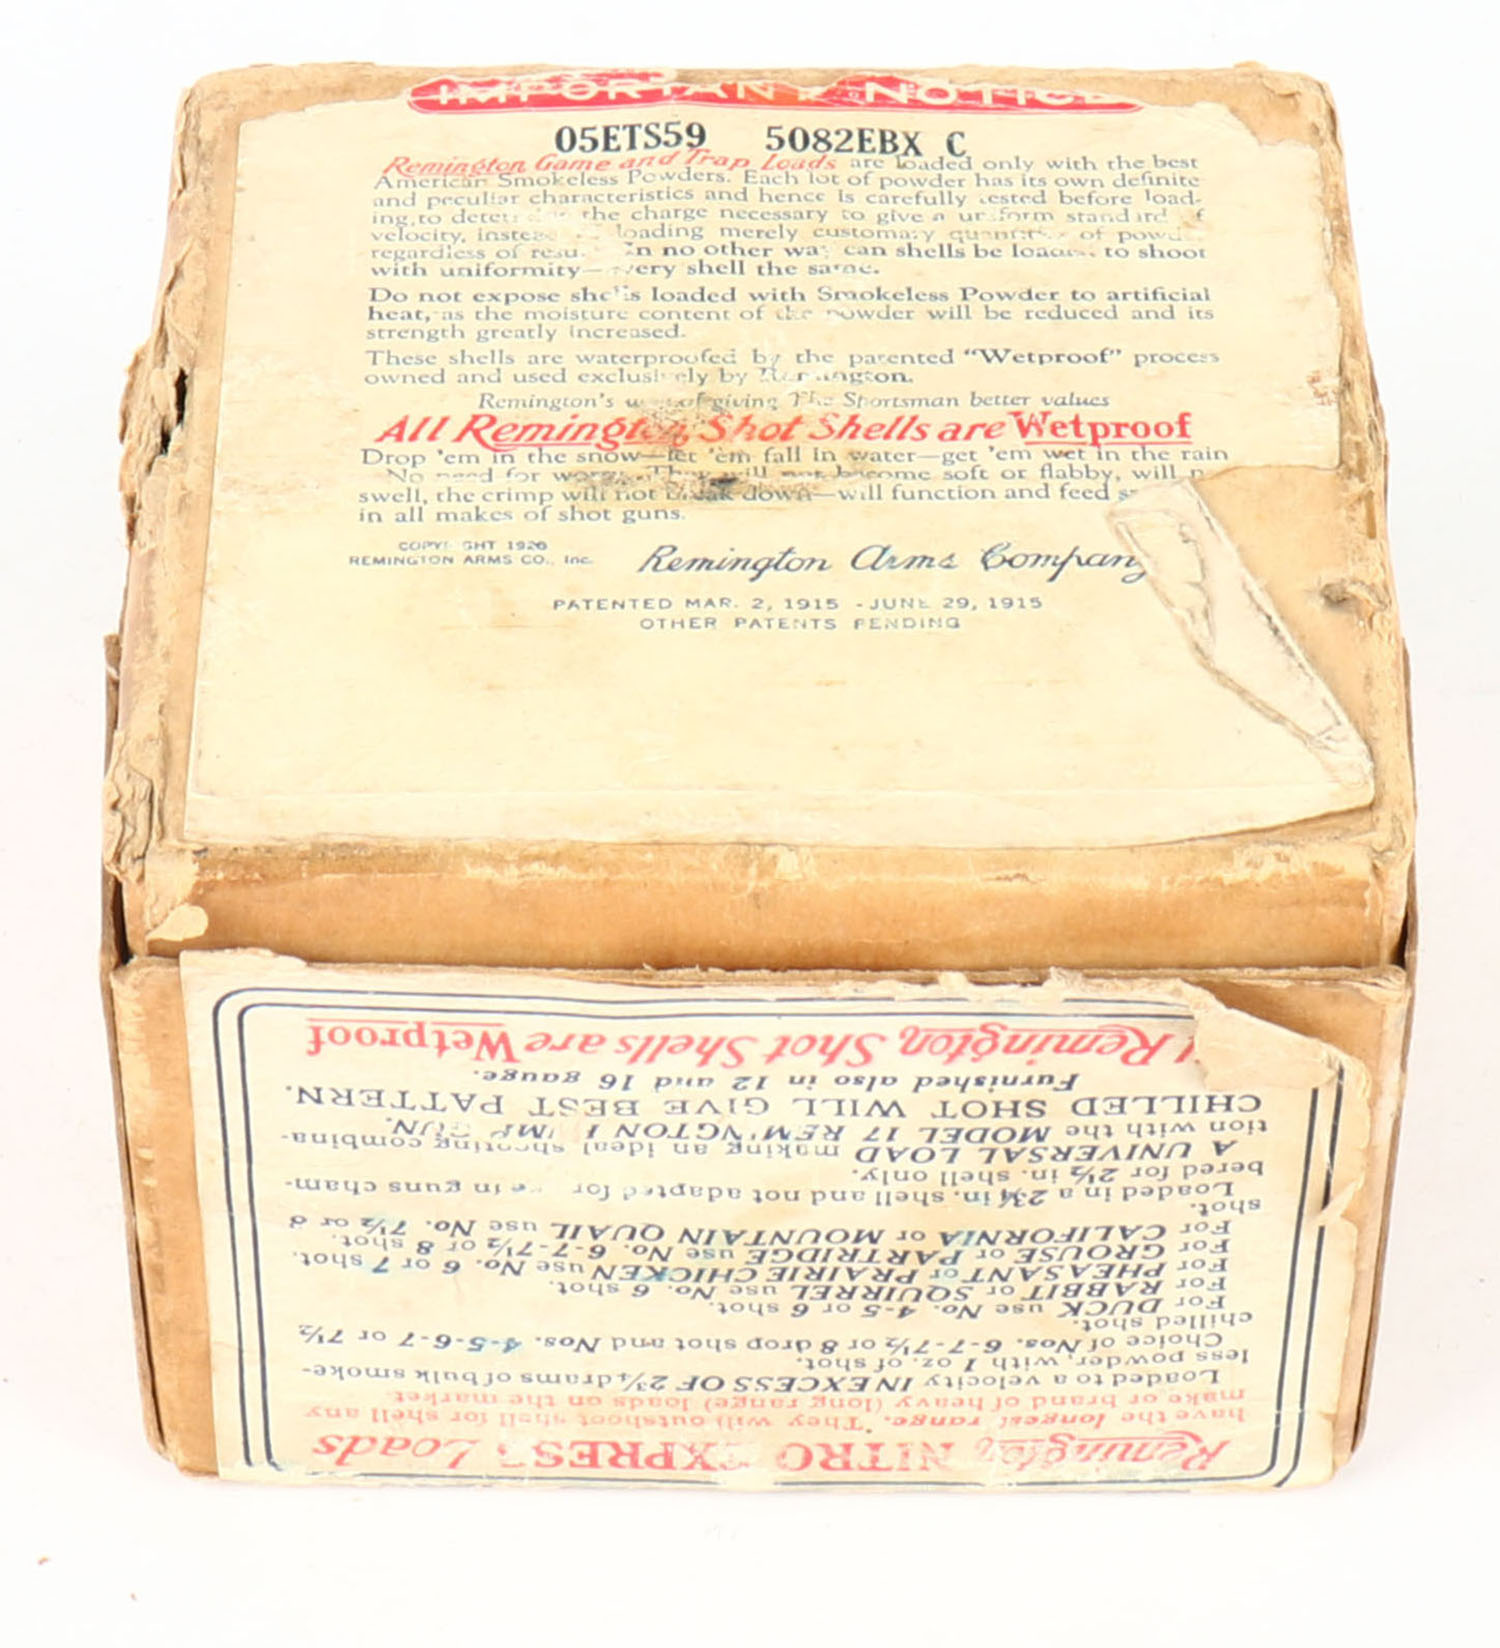 IMPORTANT NOTICE
05ETS59 5082EBX C
Remington Game and Trap Loads are loaded only with the best
American Smokeless Powders. Each lot of powder has its own definite
and peculiar characteristics and hence is carefully tested before load-
ing, to the charge necessary to give a uniform standard of
velocity, instead loading merely customary of
regardless of In no other way can shells be to shoot
with uniformity—every shell the same.
Do not expose shells loaded with Smokeless Powder to artificial
heat, as the moisture content of the powder will be reduced and its
strength greatly increased.
These shells are waterproofed by the patented "Wetproof" process
owned and used exclusively by Remington.
Remington's of giving The Sportsman better values
All Remington Shot Shells are Wetproof
Drop 'em in the snow—let 'em fall in water—get 'em wet in the rain
No need for They will not become soft or flabby, will
swell, the crimp will not break down—will function and feed
in all makes of shot guns.
COPYRIGHT 1926
REMINGTON ARMS CO., Inc.
Remington Arms Company
PATENTED MAR. 2, 1915 - JUNE 29, 1915
OTHER PATENTS PENDING
Remington NITRO EXPRESS Loads
have the longest range. They will outshoot shell for shell any
make or brand of heavy (long range) loads on the market.
Loaded to a velocity IN EXCESS OF 2¾ drams of bulk smoke-
less powder, with 1 oz. of shot.
Choice of Nos. 6-7-7½ or 8 drop shot and Nos. 4-5-6-7 or 7½
chilled shot.
For DUCK use No. 4-5 or 6 shot.
For RABBIT or SQUIRREL use No. 6 shot.
For PHEASANT or PRAIRIE CHICKEN use No. 6 or 7 shot.
For GROUSE or PARTRIDGE use No. 6-7-7½ or 8 shot.
For CALIFORNIA or MOUNTAIN QUAIL use No. 7½ or 8
shot.
Loaded in a 2¾ in. shell and not adapted for in guns cham-
bered for 2½ in. shell only.
A UNIVERSAL LOAD making an ideal shooting combina-
tion with the MODEL 17 REMINGTON PUMP GUN.
CHILLED SHOT WILL GIVE BEST PATTERN.
Furnished also in 12 and 16 gauge.
Remington Shot Shells are Wetproof